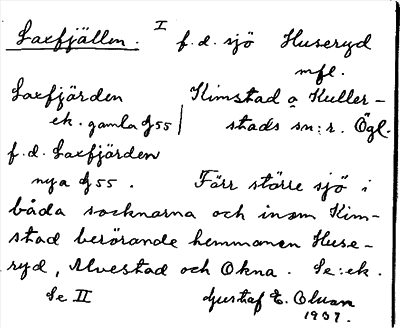 Laxfjällen. I f.d. sjö Huseryd
mfl.
Laxfjärden Kimstad o Kuller-
ek. gamla G 55 | stads sn:r. Ögl.
f.d. Laxfjärden
nya G 55. Förr större sjö i
båda socknarna och inom Kim-
stad berörande hemmanen Huse-
ryd, Alvestad och Okna. Se: ek.
Se II Gustaf E. Olsson
1937.